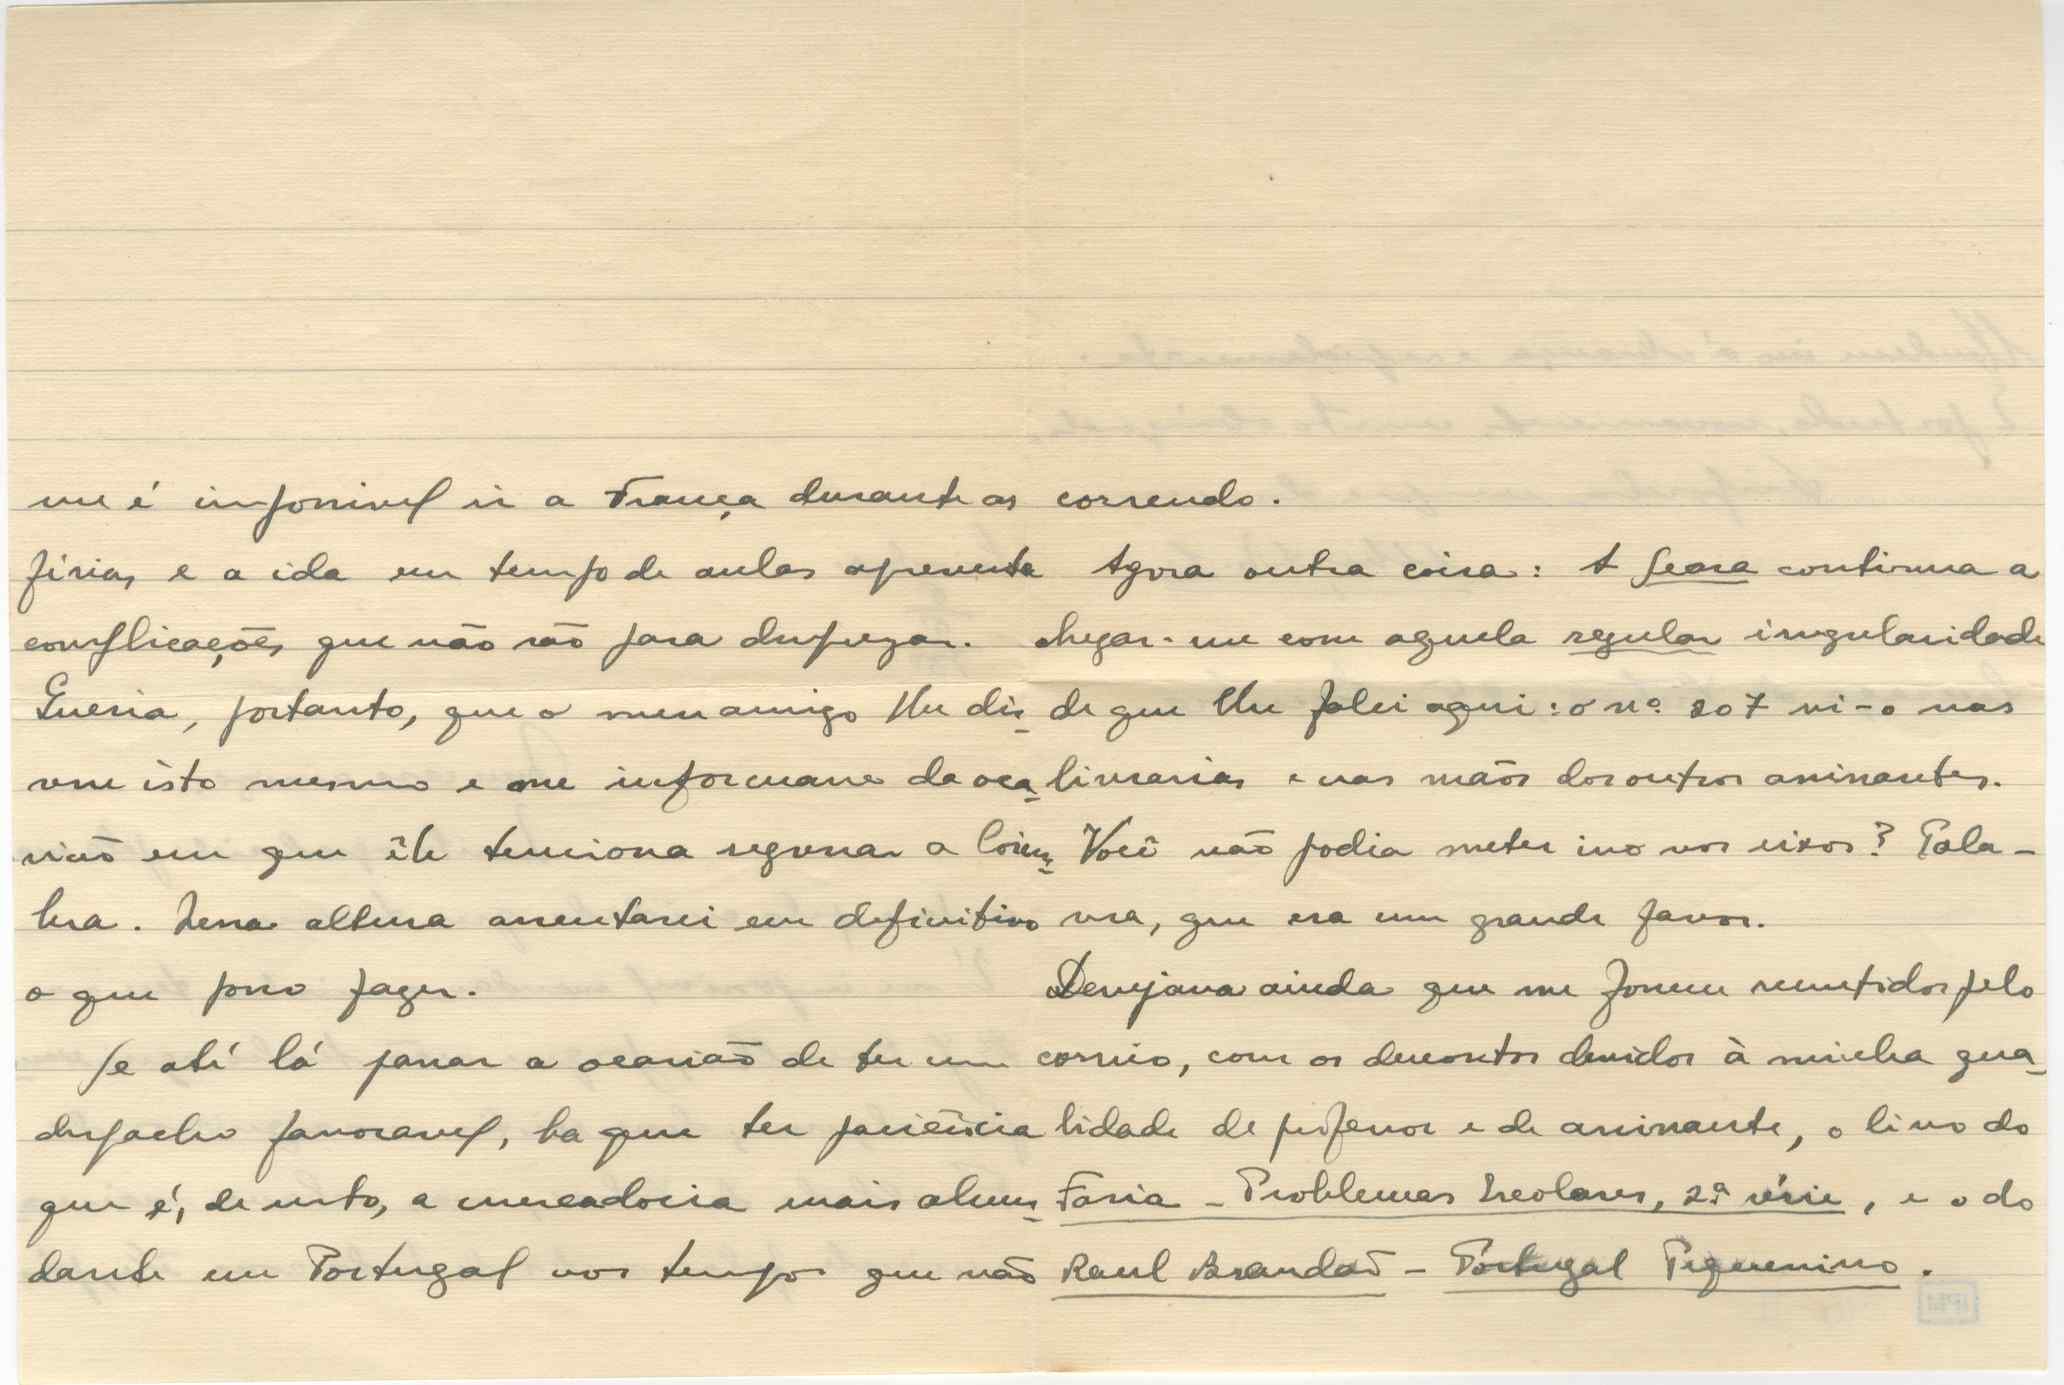 me é impossivel ir a França durante as
férias, e a ida em tempo de aulas apresenta
complicações que não são para desprezar.
Queria, portanto, que o meu amigo lhe dis-
sesse isto mesmo e me informasse da oca-
sião em que êle tenciona regressar a Coim-
bra. Nessa altura assentarei em definitivo
o que posso fazer.
Se até lá passar a ocasião de ter um
despacho favoravel, ha que ter paciência
que é, de resto, a mercadoria mais abun-
dante em Portugal nos tempos que vão
correndo.
Agora outra coisa: A Seara continua a
chegar-me com aquela regular irregularidade
de que lhe falei aqui: o nº 207 vi-o nas
livrarias e nas mãos dos outros assinantes.
Você não podia meter isso nos eixos? Pala-
vra, que era um grande favor.
Desejava ainda que me fossem remetidos pelo
correio, com os descontos devidos à minha qua-
lidade de professor e de assinante, o livro do
Faria - Problemas Escolares, 2ª série, e o do
Raul Brandão - Portugal Pequenino.